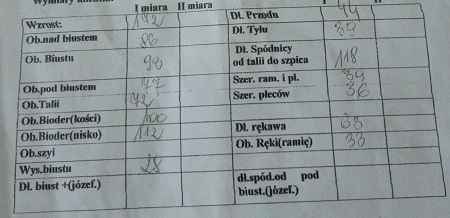 Wymiary
I miara II miara
Wzrost: 172
Ob.nad biustem 86
Ob. Biustu 98
Ob.pod biustem 77
Ob.Talii 72
Ob.Bioder(kości) 100
Ob.Bioder(nisko) 112
Ob.szyi
Wys.biustu 28
Dł. biust +(józef.)
I II
Dł. Przodu 44
Dł. Tyłu 39
Dł. Spódnicy
od talii do szpica 118
Szer. ram. i pl. 39
Szer. pleców 36
Dł. rękawa 33
Ob. Ręki(ramię) 33
dł.spód.od pod
biust.(józef.)